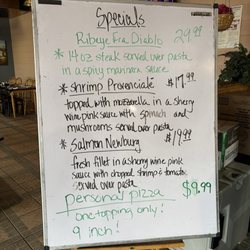 Specials
Ribeye Fra Diablo 29.99
* 14 oz steak served over pasta
in a spicy marinara sauce
* Shrimp Provenciale $17.99
topped with mozzarella in a sherry
wine pink sauce with spinach and
mushrooms served over pasta
* Salmon Newburg $19.99
fresh fillet in a sherry wine pink
sauce with chopped shrimp & tomato
served over pasta
personal pizza $9.99
one topping only!
9 inch!